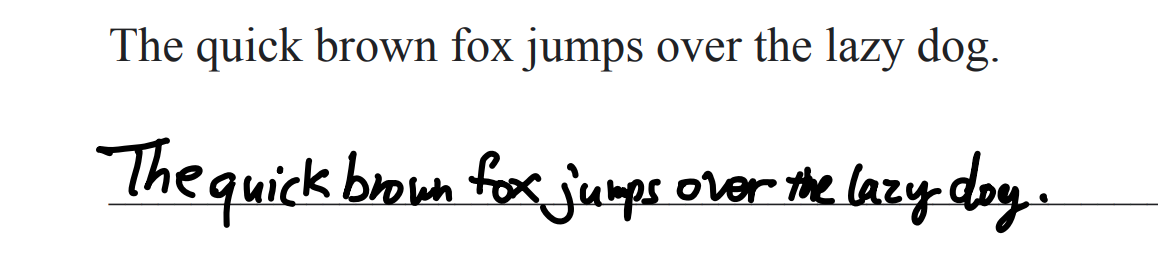 The quick brown fox jumps over the lazy dog.
The quick brown fox jumps over the lazy dog.